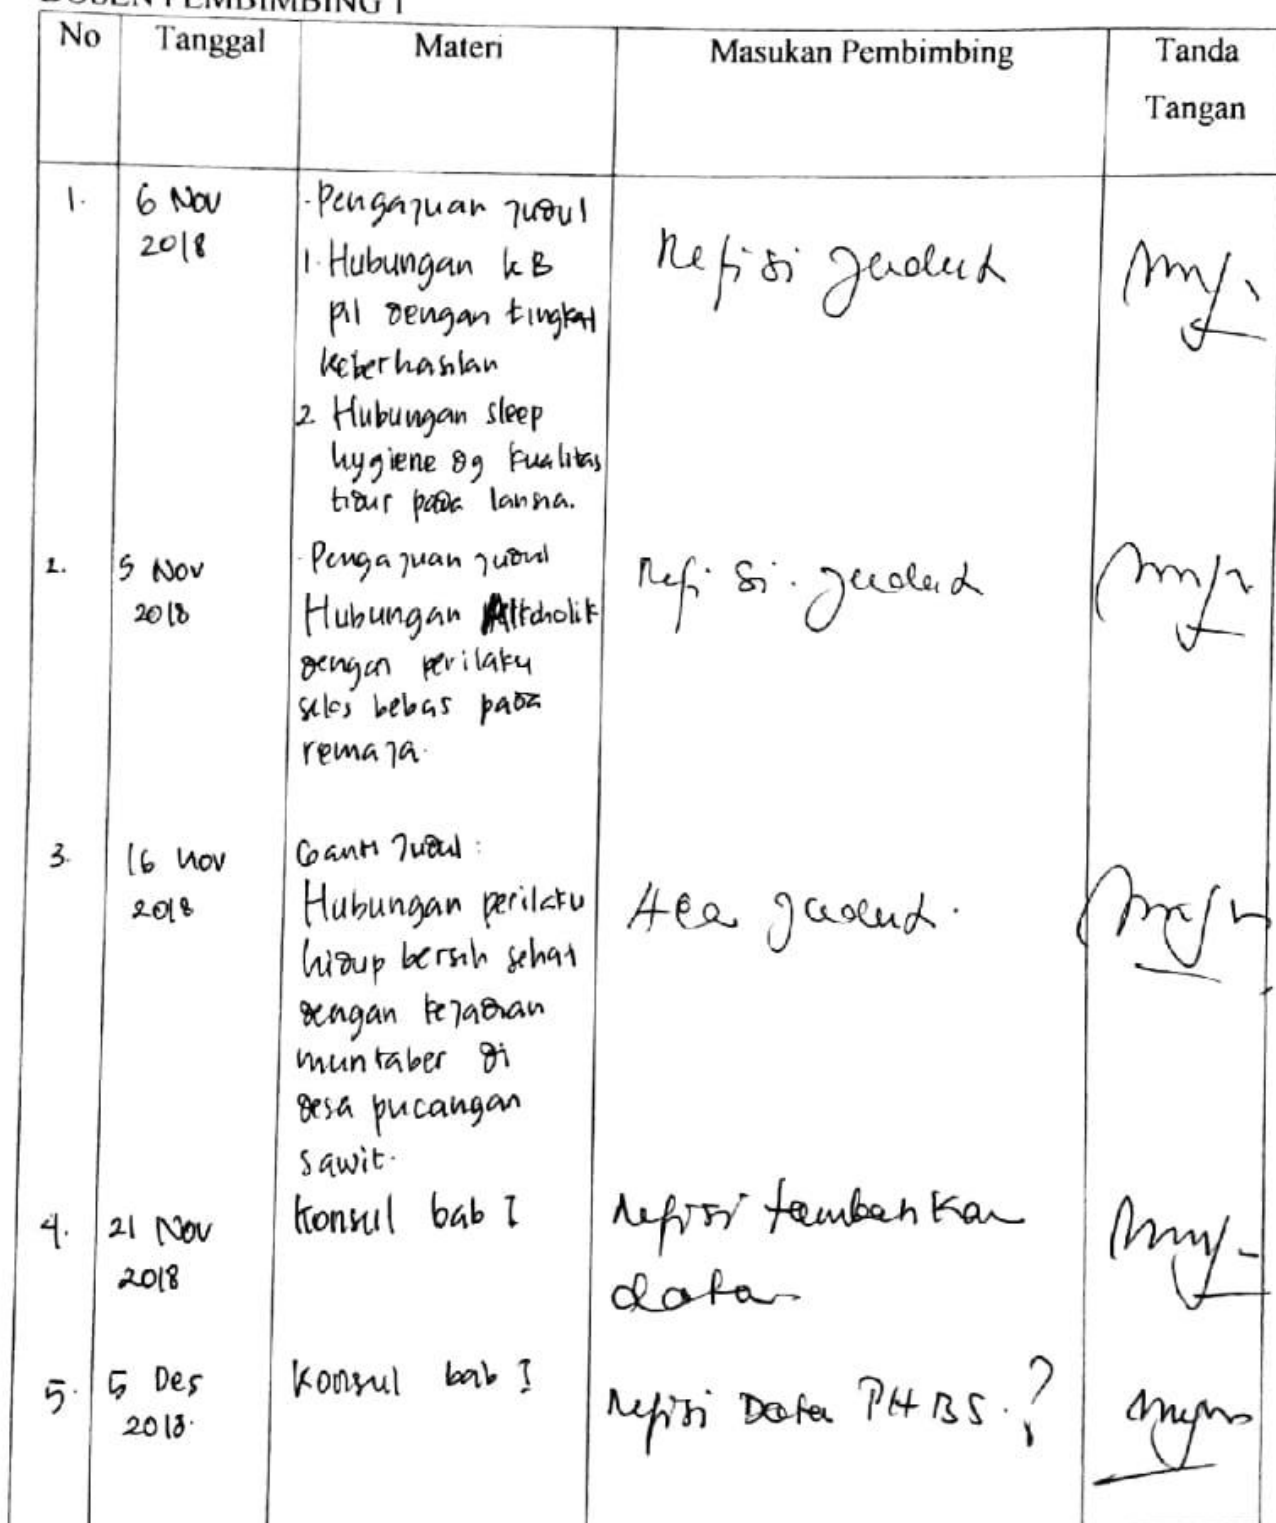 DOSEN PEMBIMBING 1
No Tanggal Materi Masukan Pembimbing Tanda
Tangan
1. 6 Nov
2018
- Pengajuan judul
1. Hubungan KB
pil dengan tingkat
keberhasilan
2. Hubungan sleep
hygiene dg kualitas
tidur pada lansia.
Refisi judul
2. 5 Nov
2018
- Pengajuan judul
Hubungan Alkoholik
dengan perilaku
seks bebas pada
remaja.
Refisi. judul
3. 16 Nov
2018
Ganti Judul :
Hubungan perilaku
hidup bersih sehat
dengan kejadian
muntaber di
desa pucangan
sawit.
Acc judul.
4. 21 Nov
2018
Konsul bab I
Refisi tambahkan
data
5. 5 Des
2018.
Konsul bab I
Refisi Data PHBS. ?